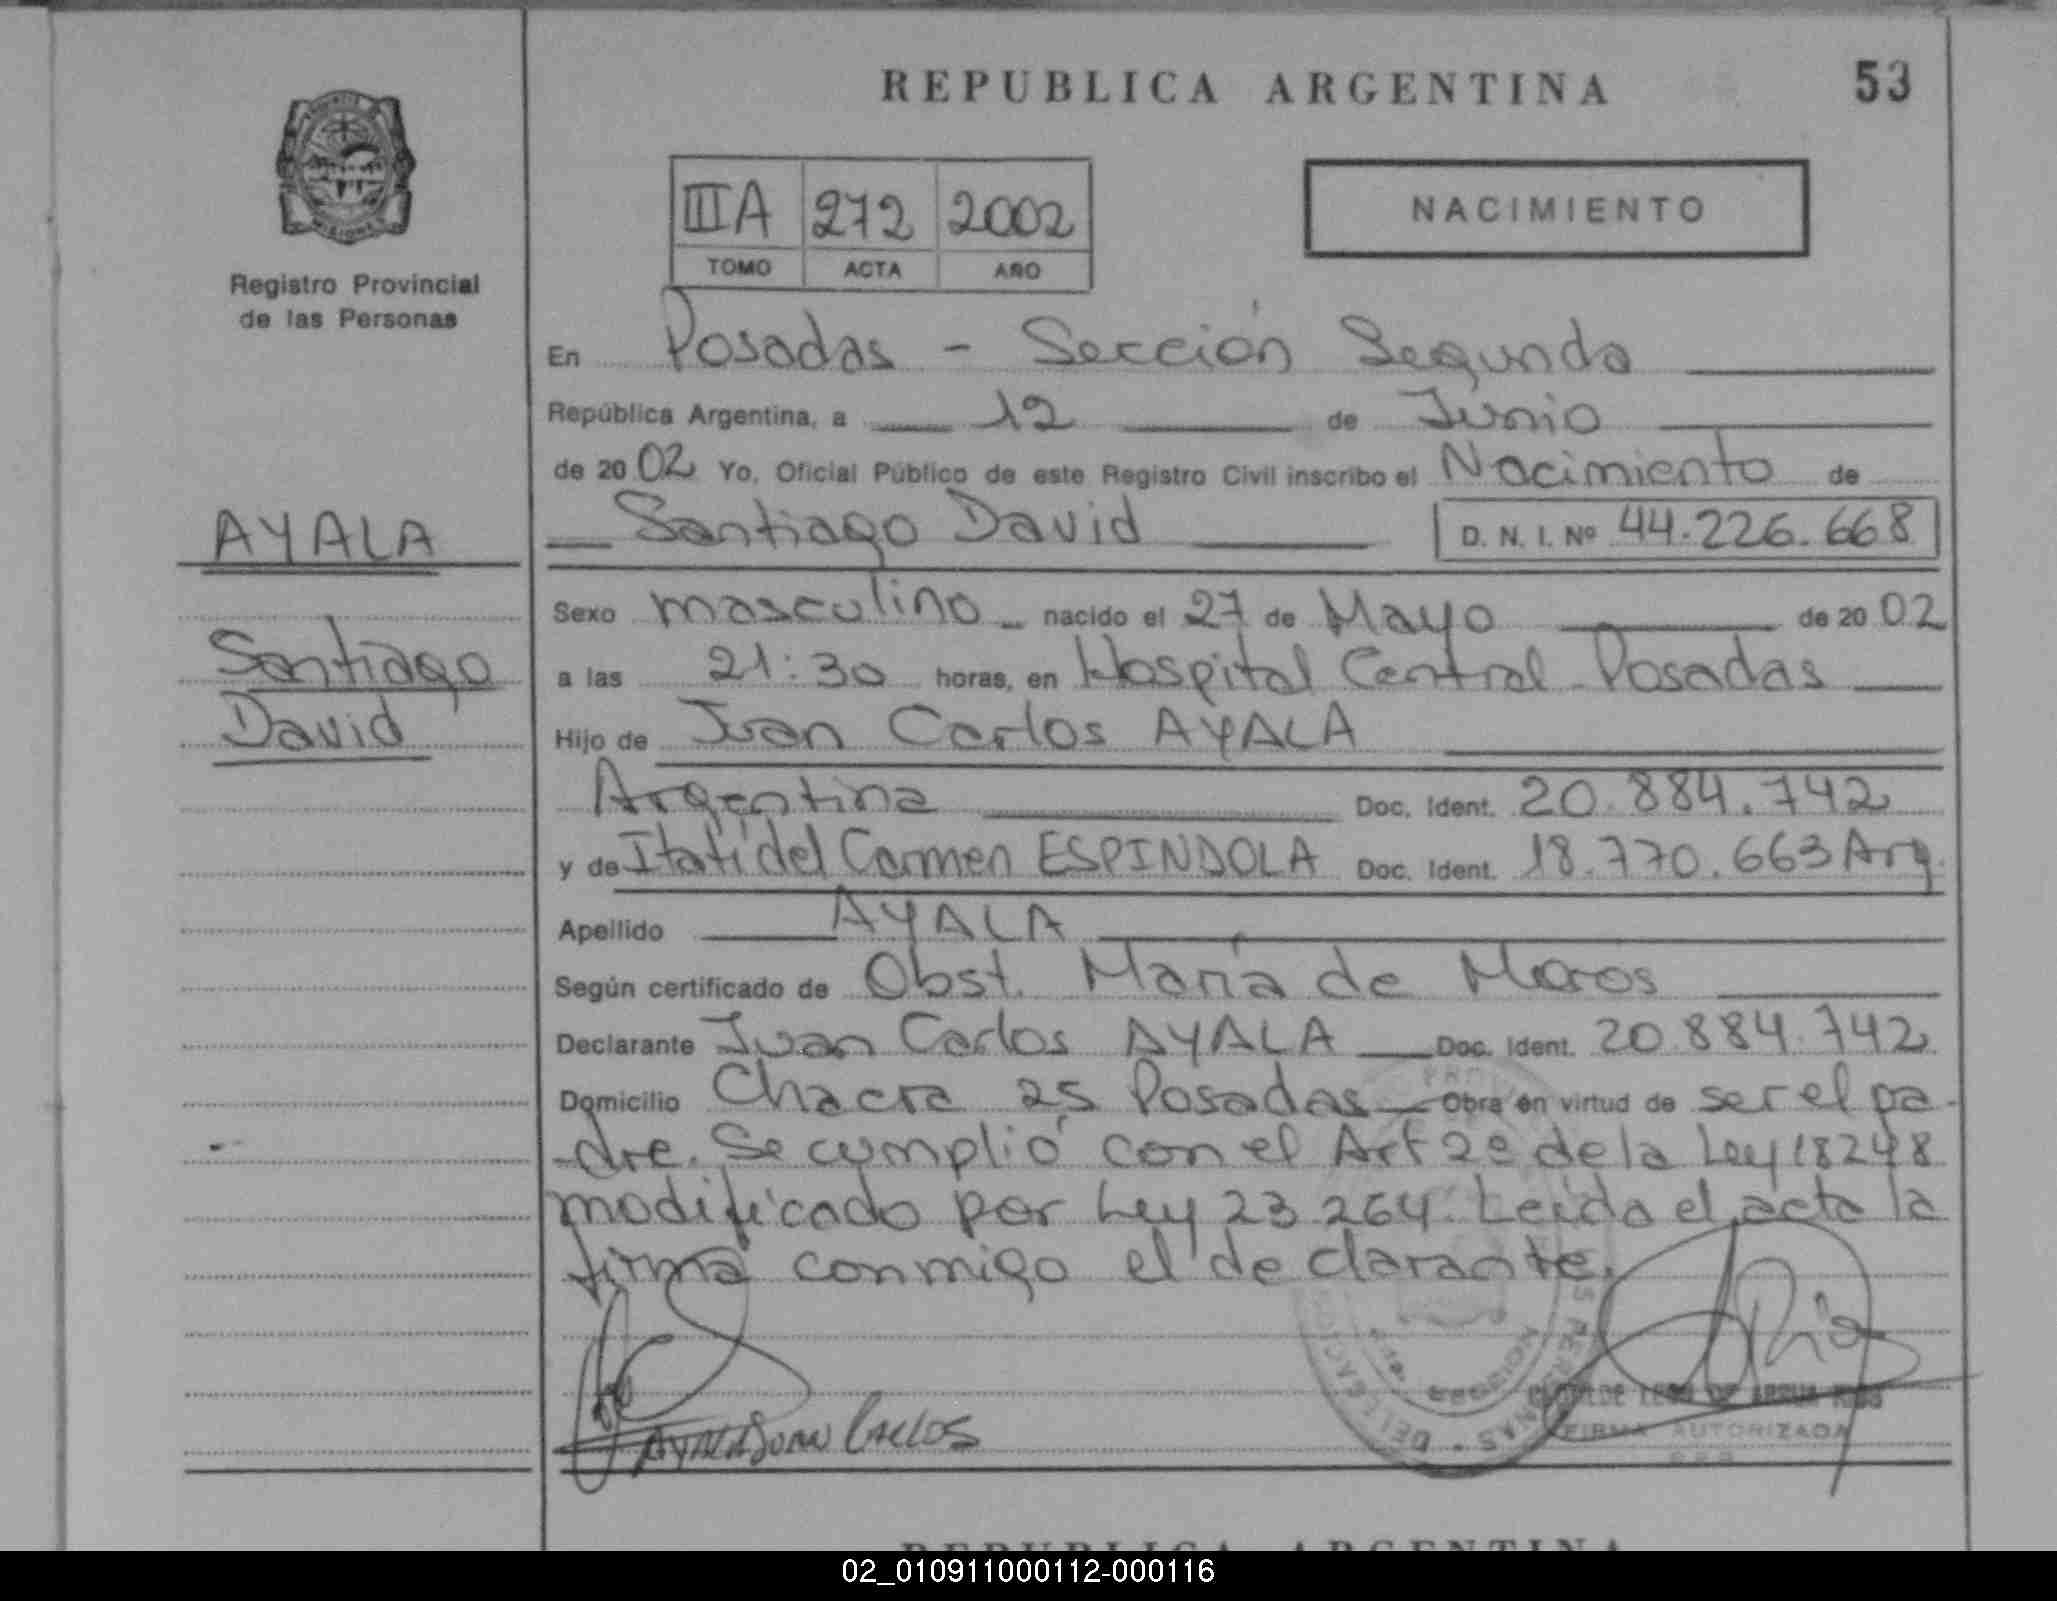 REPUBLICA ARGENTINA
53
IIIA 272 2002
TOMO ACTA AÑO
NACIMIENTO
Registro Provincial
de las Personas
AYALA
Santiago
David
En Posadas - Sección Segunda
República Argentina, a 12 de Junio
de 2002 Yo, Oficial Público de este Registro Civil inscribo el Nacimiento de
Santiago David D. N. I. Nº 44.226.668
Sexo masculino nacido el 27 de Mayo de 2002
a las 21:30 horas, en Hospital Central Posadas
Hijo de Juan Carlos AYALA
Argentina Doc. Ident. 20.884.742
y de Itatí del Carmen ESPINDOLA Doc. Ident. 18.770.663 Arg.
Apellido AYALA
Según certificado de Obst. María de Moros
Declarante Juan Carlos AYALA Doc. Ident. 20.884.742
Domicilio Chacra 25 Posadas Obra en virtud de ser el pa-
dre. Se cumplió con el Art 2º de la Ley 18248
modificado por Ley 23.264. Leída el acta la
firma conmigo el declarante.
AYALA JUAN CARLOS
FIRMA AUTORIZADA
REPUBLICA ARGENTINA
02_010911000112-000116